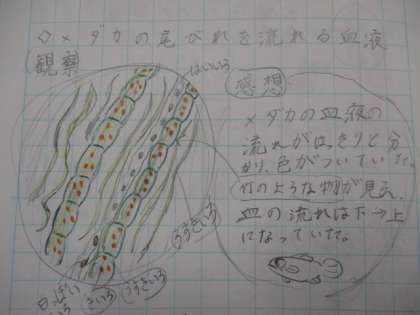 ◇メダカの尾びれを流れる血液
観察
はいいろ
感想
メダカの血液の
流れがはっきりと分
かり、色がついていた。
竹のような物が見え、
血の流れは下→上
になっていた。
うすきいろ
うすきいろ
きいろ
白っぽい